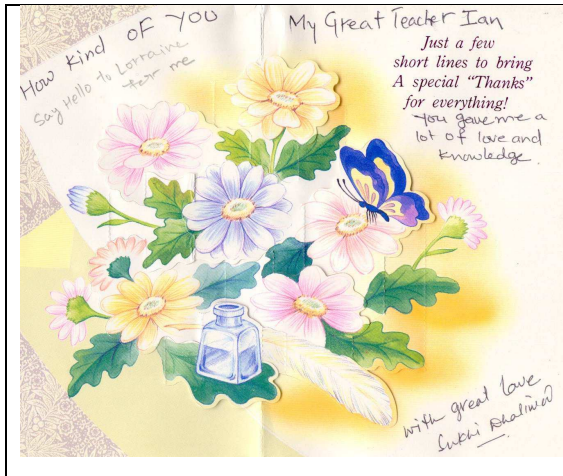 How Kind OF YOU
Say Hello to Lorraine
for me
My Great Teacher Ian
Just a few
short lines to bring
A special “Thanks”
for everything!
You gave me a
lot of love and
knowledge.
with great love
Sukhi Dhaliwal